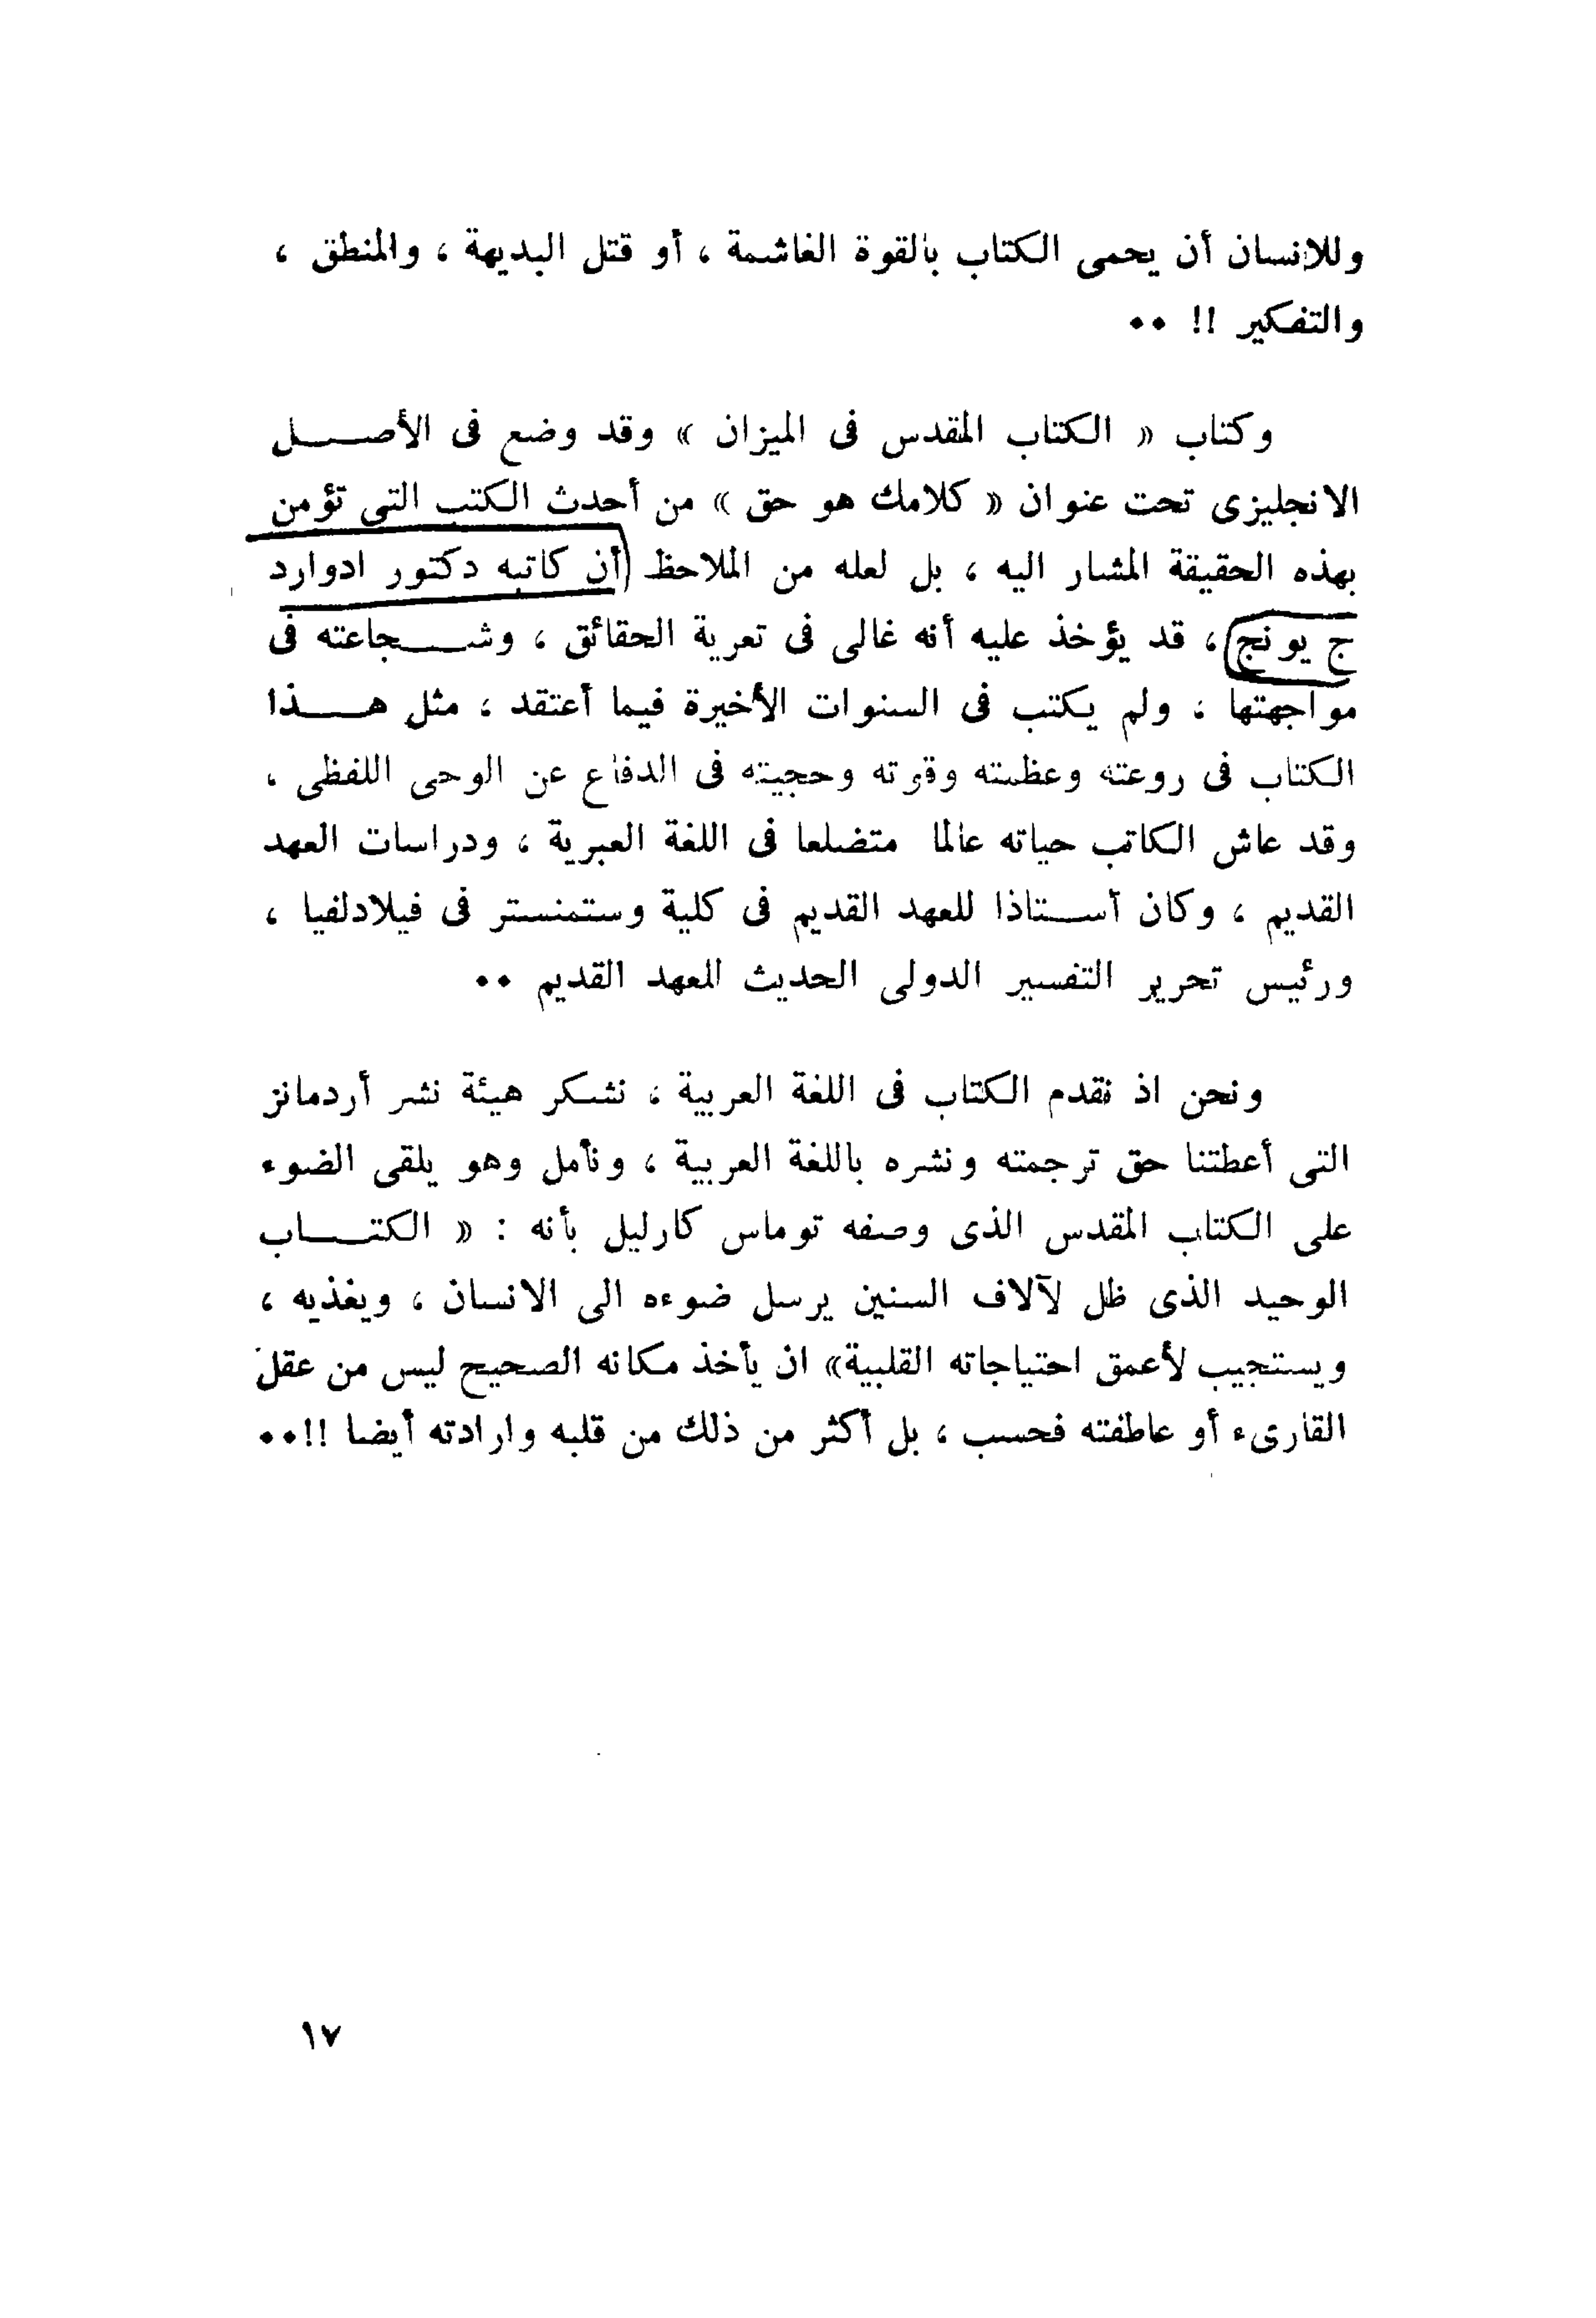 وللانسان أن يحمى الكتاب بالقوة الغاشمة ، أو قتل البديهة ، والمنطق ،
والتفكير !! ٠٠
وكتاب « الكتاب المقدس فى الميزان » وقد وضع فى الأصل
الانجليزى تحت عنوان « كلامك هو حق » من أحدث الكتب التى تؤمن
بهذه الحقيقة المشار اليه ، بل لعله من الملاحظ (أن كاتبه دكتور ادوارد
ج يونج) ، قد يؤخذ عليه أنه غالى فى تعرية الحقائق ، وشجاعته فى
مواجهتها ، ولم يكتب فى السنوات الأخيرة فيما أعتقد ، مثل هذا
الكتاب فى روعته وعظمته وقوته وحجيته فى الدفاع عن الوحى اللفظى ،
وقد عاش الكاتب حياته عالما متضلعا فى اللغة العبرية ، ودراسات العهد
القديم ، وكان أستاذا للعهد القديم فى كلية وستمنستر فى فيلادلفيا ،
ورئيس تحرير التفسير الدولى الحديث للعهد القديم ٠٠
ونحن اذ نقدم الكتاب فى اللغة العربية ، نشكر هيئة نشر أردمانز
التى أعطتنا حق ترجمته ونشره باللغة العربية ، ونأمل وهو يلقى الضوء
على الكتاب المقدس الذى وصفه توماس كارليل بأنه : « الكتاب
الوحيد الذى ظل لآلاف السنين يرسل ضوءه الى الانسان ، ويغذيه ،
ويستجيب لأعمق احتياجاته القلبية» ان يأخذ مكانه الصحيح ليس من عقل
القارىء أو عاطفته فحسب ، بل أكثر من ذلك من قلبه وارادته أيضا !!٠٠
١٧